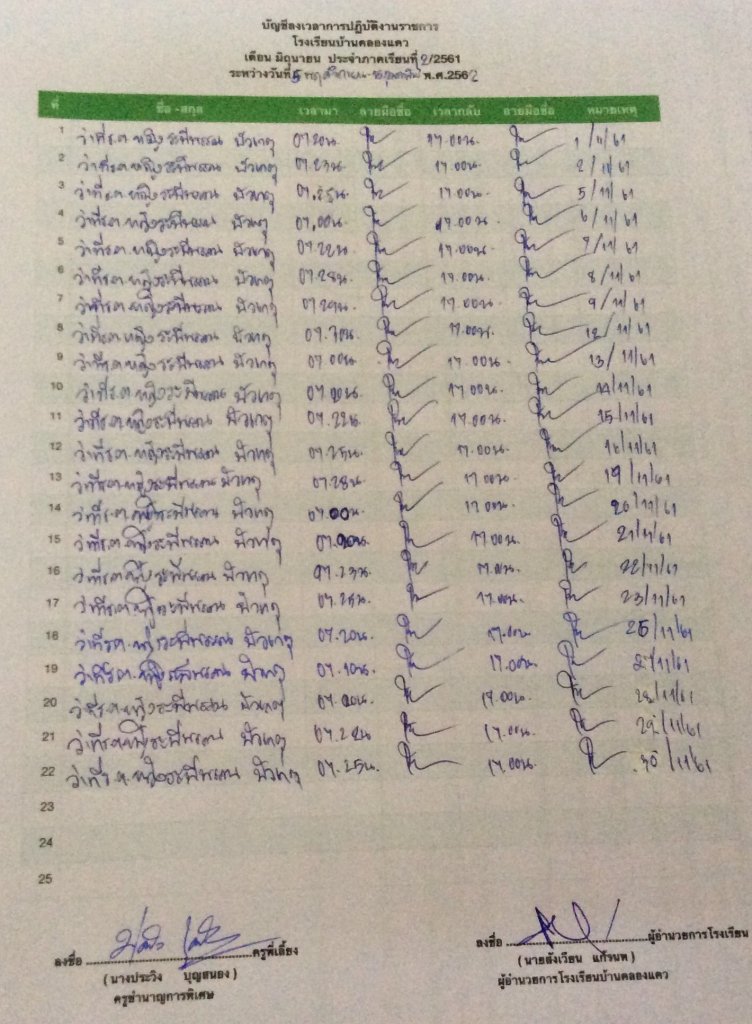 บัญชีลงเวลาการปฏิบัติงานราชการ
โรงเรียนบ้านคลองแคว
เดือน มิถุนายน ประจำภาคเรียนที่ 2/2561
ระหว่างวันที่ พ.ศ.2562
ที่ ชื่อ -สกุล เวลามา ลายมือชื่อ เวลากลับ ลายมือชื่อ หมายเหตุ
1 ว่าที่ร.ต.หญิงระพีพรรณ บัวเกตุ 07.20น. 17.00น. 1/11/61
2 ว่าที่ร.ต.หญิงระพีพรรณ บัวเกตุ 07.23น. 17.00น. 2/11/61
3 ว่าที่ร.ต.หญิงระพีพรรณ บัวเกตุ 07.25น. 17.00น. 5/11/61
4 ว่าที่ร.ต.หญิงระพีพรรณ บัวเกตุ 07.00น. 17.00น. 6/11/61
5 ว่าที่ร.ต.หญิงระพีพรรณ บัวเกตุ 07.22น. 17.00น. 7/11/61
6 ว่าที่ร.ต.หญิงระพีพรรณ บัวเกตุ 07.28น. 17.00น. 8/11/61
7 ว่าที่ร.ต.หญิงระพีพรรณ บัวเกตุ 17.00น. 9/11/61
8 ว่าที่ร.ต.หญิงระพีพรรณ บัวเกตุ 07.30น. 17.00น. 12/11/61
9 ว่าที่ร.ต.หญิงระพีพรรณ บัวเกตุ 07.00น. 17.00น. 13/11/61
10 ว่าที่ร.ต.หญิงระพีพรรณ บัวเกตุ 07.00น. 17.00น. 14/11/61
11 ว่าที่ร.ต.หญิงระพีพรรณ บัวเกตุ 07.22น. 17.00น. 15/11/61
12 ว่าที่ร.ต.หญิงระพีพรรณ บัวเกตุ 07.25น. 17.00น. 16/11/61
13 ว่าที่ร.ต.หญิงระพีพรรณ บัวเกตุ 07.28น. 17.00น. 19/11/61
14 ว่าที่ร.ต.หญิงระพีพรรณ บัวเกตุ 07.00น. 17.00น. 20/11/61
15 ว่าที่ร.ต.หญิงระพีพรรณ บัวเกตุ 17.00น. 21/11/61
16 ว่าที่ร.ต.หญิงระพีพรรณ บัวเกตุ 07.23น. 17.00น. 22/11/61
17 ว่าที่ร.ต.หญิงระพีพรรณ บัวเกตุ 07.25น. 17.00น. 23/11/61
18 ว่าที่ร.ต.หญิงระพีพรรณ บัวเกตุ 07.20น. 17.00น. /11/61
19 ว่าที่ร.ต.หญิงระพีพรรณ บัวเกตุ 07.10น. 17.00น. /11/61
20 ว่าที่ร.ต.หญิงระพีพรรณ บัวเกตุ 17.00น. /11/61
21 ว่าที่ร.ต.หญิงระพีพรรณ บัวเกตุ 07.22น. 17.00น. 29/11/61
22 ว่าที่ร.ต.หญิงระพีพรรณ บัวเกตุ 07.25น. 17.00น. 30/11/61
23
24
25
ลงชื่อ ครูพี่เลี้ยง ลงชื่อ ผู้อำนวยการโรงเรียน
( นางประวิง บุญสนอง ) ( นายสังเวียน แก้วนพ )
ครูชำนาญการพิเศษ ผู้อำนวยการโรงเรียนบ้านคลองแคว